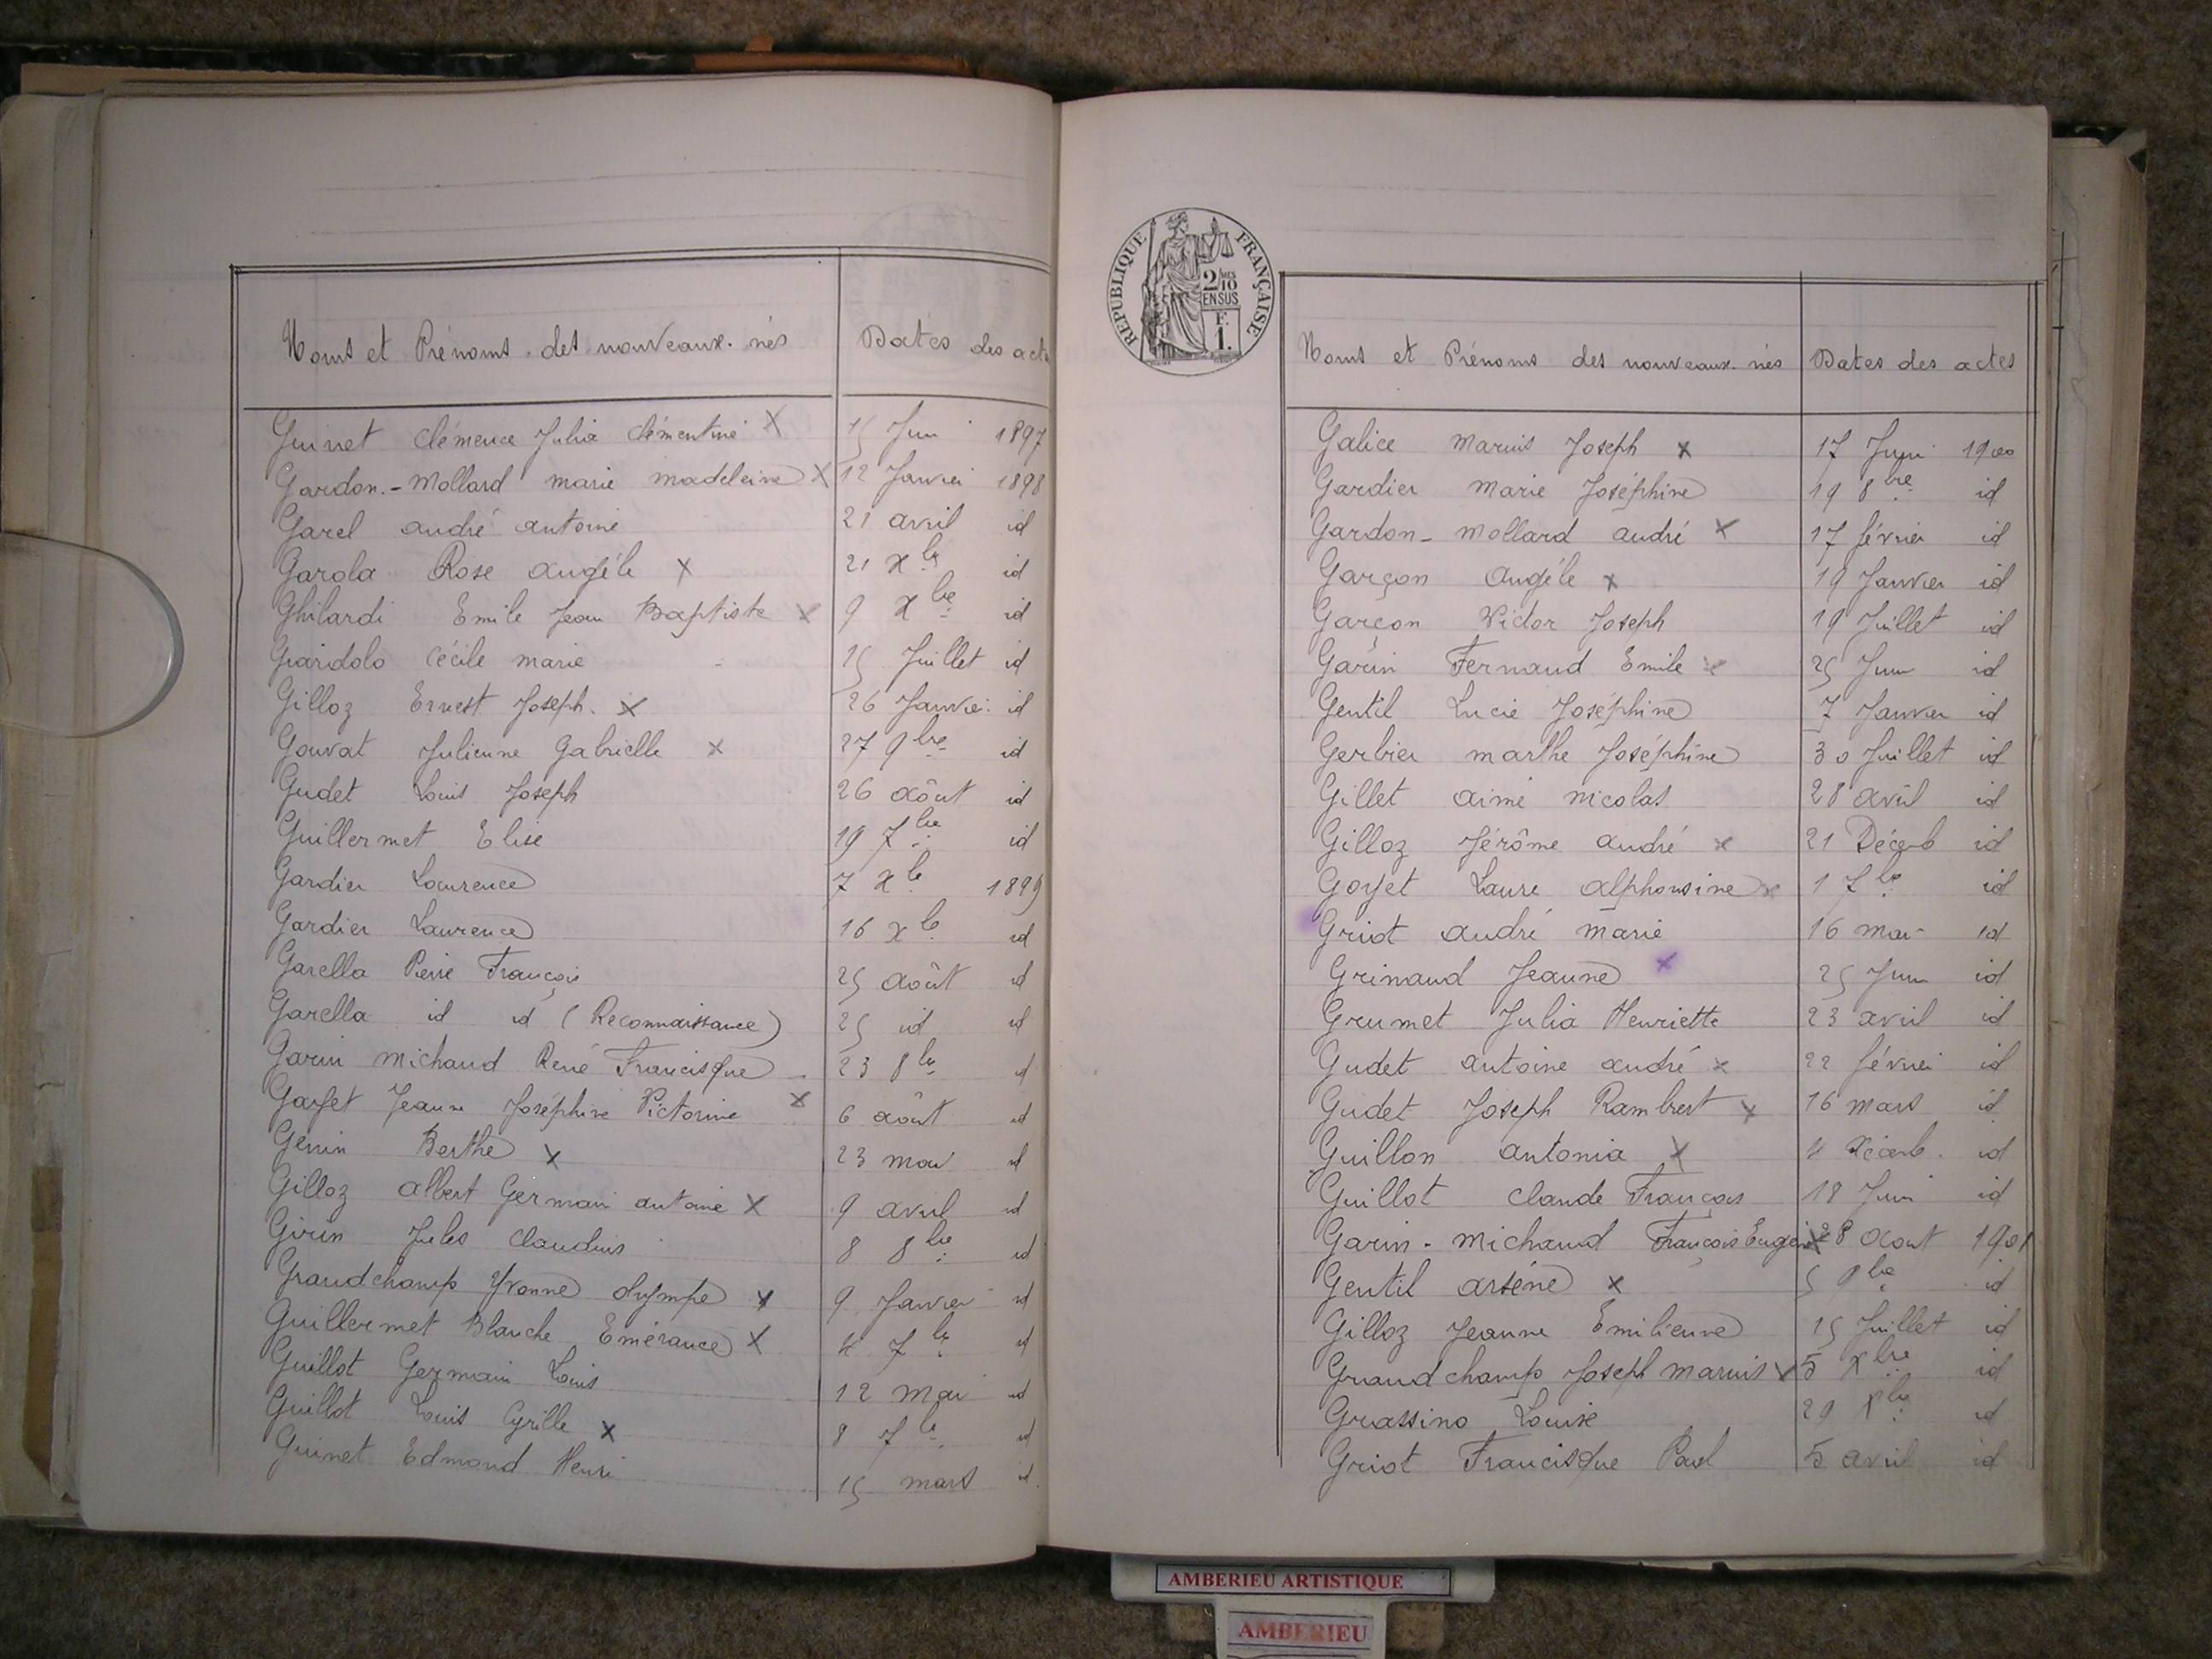 Noms et Prénoms des nouveaux-nés Dates des acte
Guinet Clémence Julia Clémentine X 15 Juin 1897
Gardon-Mollard marie madeleine X 12 Janvier 1898
Garel andré antoine 21 avril id
Garola Rose angèle X 21 Xbre id
Ghilardi Emile Jean Baptiste X 9 Xbre id
Giardolo Cécile marie 15 Juillet id
Gilloz Ernest Joseph. X 26 Janvier id
Gouvat Julienne Gabrielle X 27 9bre id
Gudet Louis Joseph 26 août id
Guillermet Elise 19 7bre id
Gardier Laurence 7 Xbre 1899
Gardier Laurence 16 Xbre id
Garella Pierre François 25 août id
Garella id id (Reconnaissance) 25 id id
Garin Michaud René Francisque 23 8bre id
Gayet Jeanne Joséphine Victorine X 6 août id
Genin Berthe X 23 mai id
Gilloz albert Germain antoine X 9 avril id
Girin Jules Claudius 8 8bre id
Grandchamp Yvonne olympe X 9 Janvier id
Guillermet Blanche Emérance X 4 7bre id
Guillot Germain Louis 12 Mai id
Guillot Louis Cyrille X 8 7bre id
Guinet Edmond Henri 15 mars id
RÉPUBLIQUE FRANÇAISE
2/10 MES
EN SUS
F.
1.
Noms et Prénoms des nouveaux-nés Dates des actes
Galice Marius Joseph X 17 Juin 1900
Gardier Marie Joséphine 19 8bre id
Gardon-Mollard andré X 17 février id
Garçon Angèle X 19 Janvier id
Garçon Victor Joseph 19 Juillet id
Garin Fernand Emile X 25 Juin id
Gentil Lucie Joséphine 7 Janvier id
Gerbier marthe Joséphine 30 Juillet id
Gillet aimé nicolas 28 avril id
Gilloz Jérôme andré X 21 Décemb id
Goyet Laure alphonsine X 1 7bre id
Griot andré marie 16 mai id
Grinand Jeanne X 25 Juin id
Grumet Julia Henriette 23 avril id
Gudet antoine andré X 22 février id
Gudet Joseph Rambert X 16 mars id
Guillon antonia X 4 Décemb. id
Guillot Claude François 18 Juin id
Garin-Michaud François Eugène X 28 aout 1901
Gentil arsène X 5 9bre id
Gilloz Jeanne Emilienne 15 Juillet id
Grandchamp Joseph marius X 5 Xbre id
Grassino Louise 29 Xbre id
Griot Francisque Paul 5 avril id
AMBERIEU ARTISTIQUE
AMBERIEU